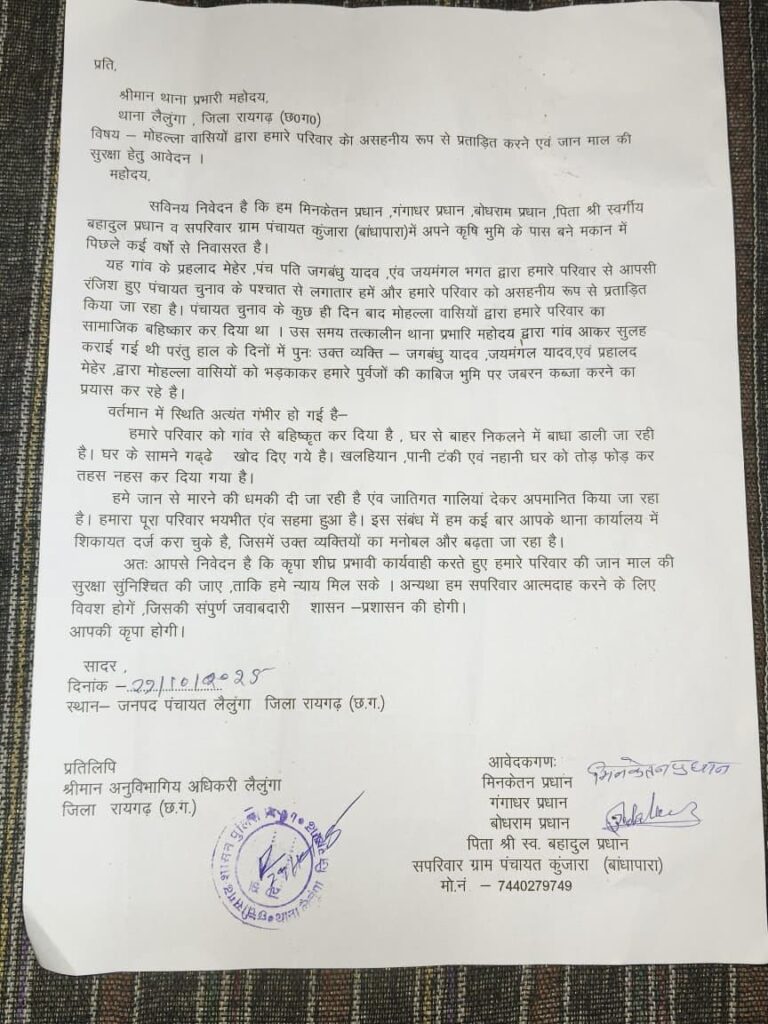 प्रति,
श्रीमान थाना प्रभारी महोदय,
थाना लैलुंगा , जिला रायगढ़ (छ0ग0)
विषय – मोहल्ला वासियों द्वारा हमारे परिवार केा असहनीय रूप से प्रताड़ित करने एवं जान माल की
सुरक्षा हेतु आवेदन ।
महोदय,
सविनय निवेदन है कि हम मिनकेतन प्रधान ,गंगाधर प्रधान ,बोधराम प्रधान ,पिता श्री स्वर्गीय
बहादुल प्रधान व सपरिवार ग्राम पंचायत कुंजारा (बांधापारा)में अपने कृषि भुमि के पास बने मकान में
पिछले कई वर्षो से निवासरत है।
यह गांव के प्रहलाद मेहेर ,पंच पति जगबंधु यादव ,एंव जयमंगल भगत द्वारा हमारे परिवार से आपसी
रंजिश हुए पंचायत चुनाव के पश्चात से लगातार हमें और हमारे परिवार को असहनीय रूप से प्रताड़ित
किया जा रहा है। पंचायत चुनाव के कुछ ही दिन बाद मोहल्ला वासियों द्वारा हमारे परिवार का
सामाजिक बहिष्कार कर दिया था । उस समय तत्कालीन थाना प्रभारि महोदय द्वारा गांव आकर सुलह
कराई गई थी परंतु हाल के दिनों में पुनः उक्त व्यक्ति – जगबंधु यादव ,जयमंगल यादव,एवं प्रहालद
मेहेर ,द्वारा मोहल्ला वासियों को भड़काकर हमारे पुर्वजों की काबिज भुमि पर जबरन कब्जा करने का
प्रयास कर रहे है।
वर्तमान में स्थिति अत्यंत गंभीर हो गई है–
हमारे परिवार को गांव से बहिष्कृत कर दिया है , घर से बाहर निकलने में बाधा डाली जा रही
है। घर के सामने गढ्ढे खोद दिए गये है। खलहियान ,पानी टंकी एवं नहानी घर को तोड़ फोड़ कर
तहस नहस कर दिया गया है।
हमे जान से मारने की धमकी दी जा रही है एंव जातिगत गालियां देकर अपमानित किया जा रहा
है। हमारा पूरा परिवार भयभीत एंव सहमा हुआ है। इस संबंध में हम कई बार आपके थाना कार्यालय में
शिकायत दर्ज करा चुके है, जिसमें उक्त व्यक्तियों का मनोबल और बढ़ता जा रहा है।
अतः आपसे निवेदन है कि कृपा शीघ्र प्रभावी कार्यवाही करते हुए हमारे परिवार की जान माल की
सुरक्षा सुंनिश्चित की जाए ,ताकि हमे न्याय मिल सके । अन्यथा हम सपरिवार आत्मदाह करने के लिए
विवश होगें ,जिसकी संपुर्ण जवाबदारी शासन –प्रशासन की होगी।
आपकी कृपा होगी।
सादर ,
दिनांक –29/10/2025
स्थान– जनपद पंचायत लैलुंगा जिला रायगढ़ (छ.ग.)
प्रतिलिपि
श्रीमान अनुविभागिय अधिकरी लैलुंगा
जिला रायगढ़ (छ.ग.)
आवेदकगणः
मिनकेतन प्रधान मिनकेतन प्रधान
गंगाधर प्रधान
बोधराम प्रधान
पिता श्री स्व. बहादुल प्रधान
सपरिवार ग्राम पंचायत कुंजारा (बांधापारा)
मो.नं – 7440279749